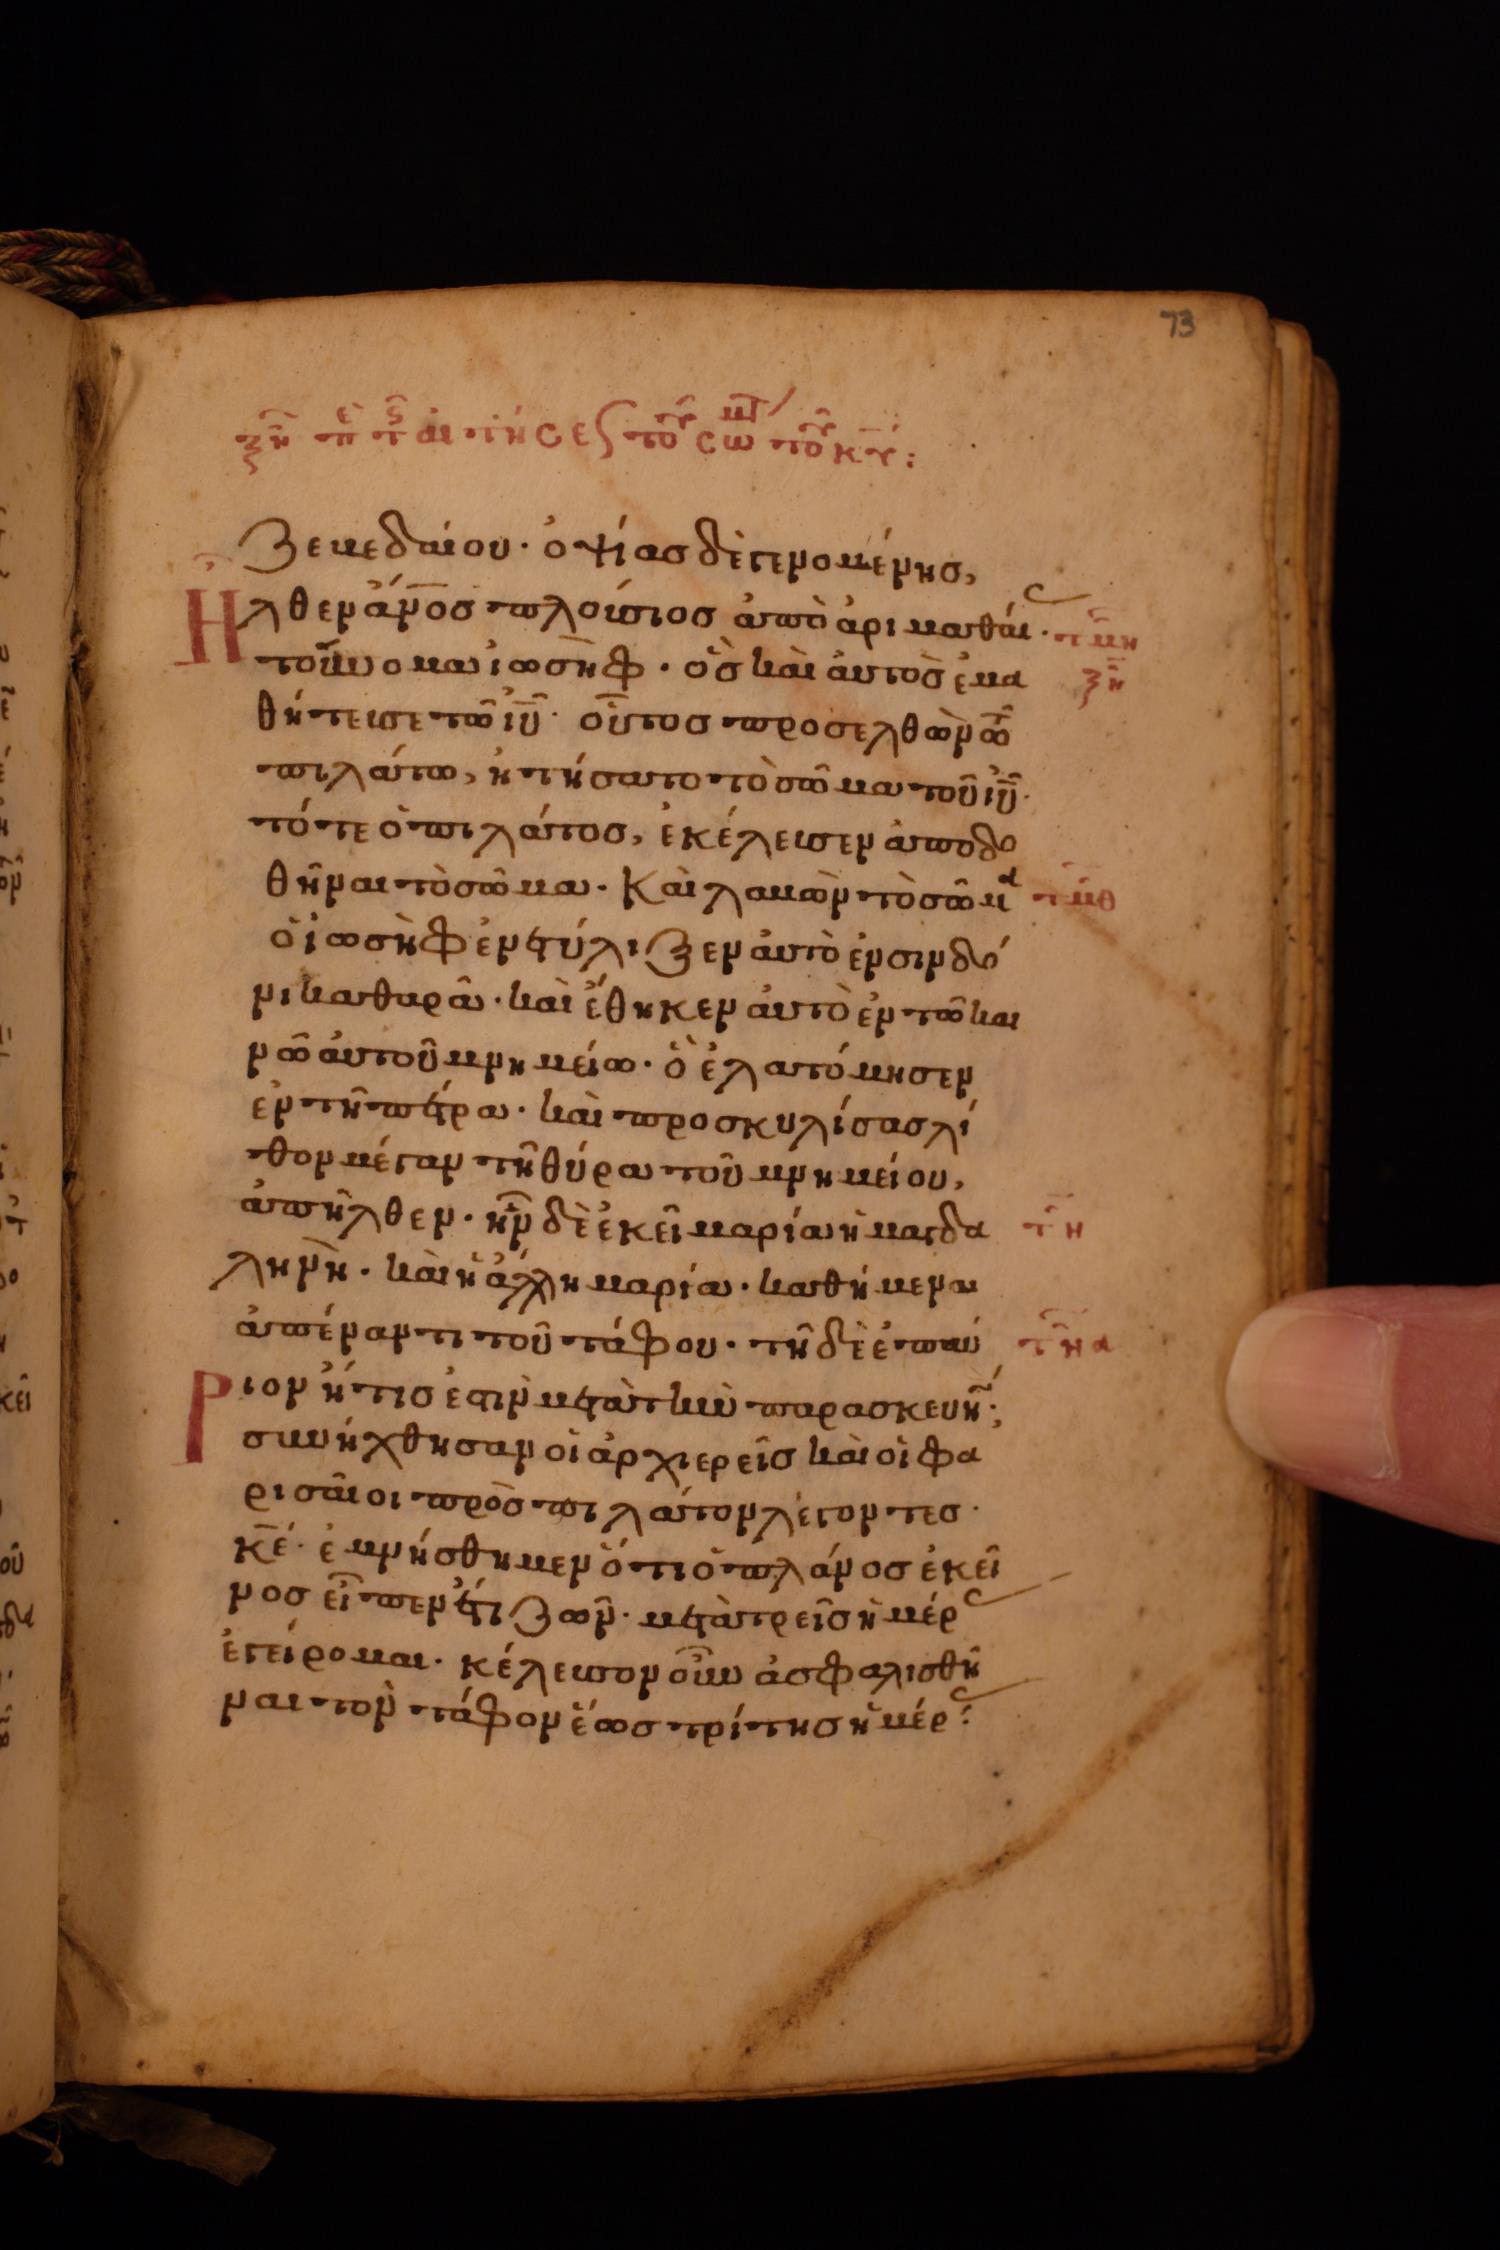 73
ξη πε τς αιτήσε τοῦ σωμτ τοῦ κυ:
Ζεβεδαίου· ὀψίας δὲ γενομένης,
Ἦλθεν ἄνος πλούσιος ἀπὸ ἀριμαθαι· τμη
τοὔνομα ἰωσὴφ· ὃς καὶ ἀυτὸς ἐμα ξη
θήτευσε τῶ ιῦ· οὗτος προσελθὼν τῶ
πιλάτω, ἠτήσατο τὸ σῶμα τοῦ ιῦ·
τότε ὁ πιλάτος, ἐκέλευσεν ἀποδο
θῆναι τὸ σῶμα· Καὶ λαβὼν τὸ σῶμα τμθ
ὁ ἰωσὴφ ἐνετύλιξεν ἀυτὸ ἐν σινδό
νι καθαρᾶ· καὶ ἔθηκεν ἀυτὸ ἐν τῶ και
νῶ ἀυτοῦ μνημείω· ὃ ἐλατόμησεν
ἐν τῆ πέτρα· καὶ προσκυλίσας λί
θον μέγαν τῆ θύρα τοῦ μνημείου,
ἀπῆλθεν· ἦν δὲ ἐκεῖ μαρία ἡ μαγδα τν
ληνὴ· καὶ ἡ ἄλλη μαρία· καθήμεναι
ἀπέναντι τοῦ τάφου· τῆ δὲ ἐπαύ τνα
ριον ἥτις ἐστὶν μετὰ τὴν παρασκευὴν;
συνήχθησαν οἱ ἀρχιερεῖς καὶ οἱ φα
ρισαῖοι πρὸς πιλάτον λέγοντες·
κε· ἐμνήσθημεν ὅτι ὁ πλάνος ἐκεῖ
νος εἶπεν ἔτι ζῶν· μετὰ τρεῖς ἡμέρ
ἐγείρομαι· κέλευσον οὖν ἀσφαλισθῆ
ναι τὸν τάφον ἕως τρίτης ἡμέρ: